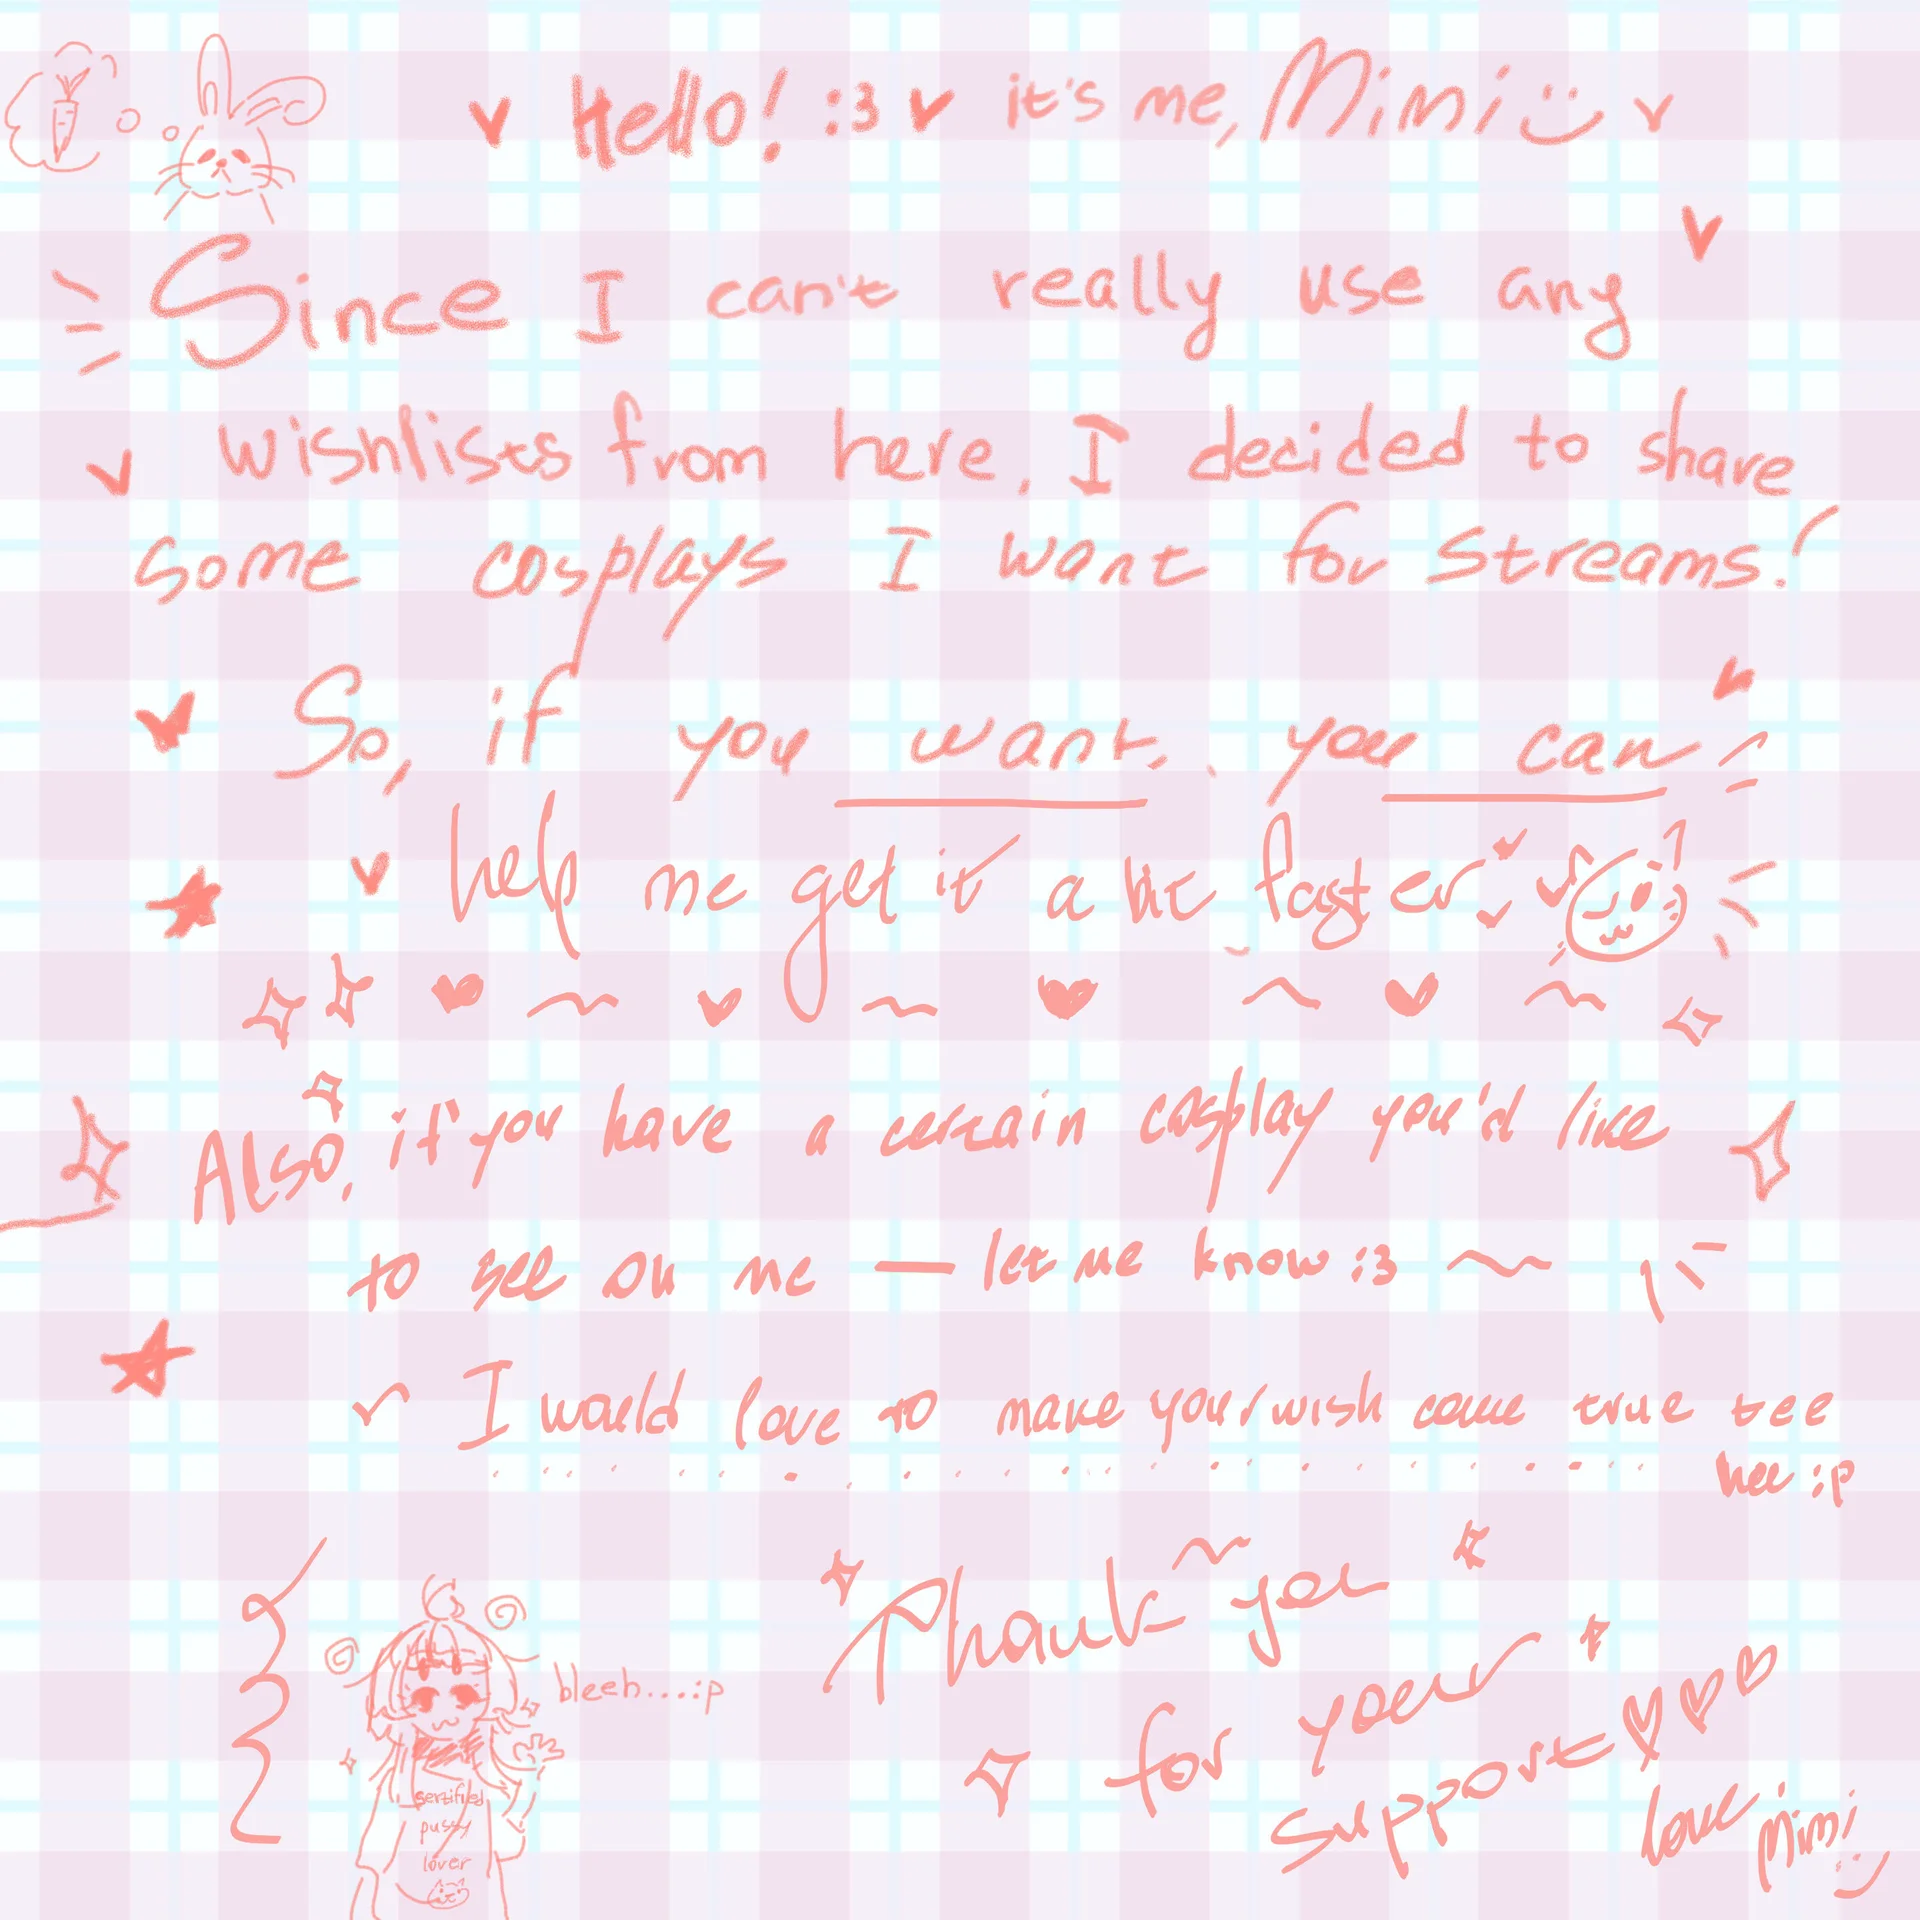 Hello! :3 it's me, Mimi
Since I can't really use any
wishlists from here, I decided to share
some cosplays I want for streams!
So, if you want, you can
help me get it a bit faster
Also, if you have a certain cosplay you'd like
to see on me — let me know :3 ~
I would love to make your wish come true tee
hee :p
bleeh...:p
Thank you
for your
support
love Mimi
sertified
pussy
lover